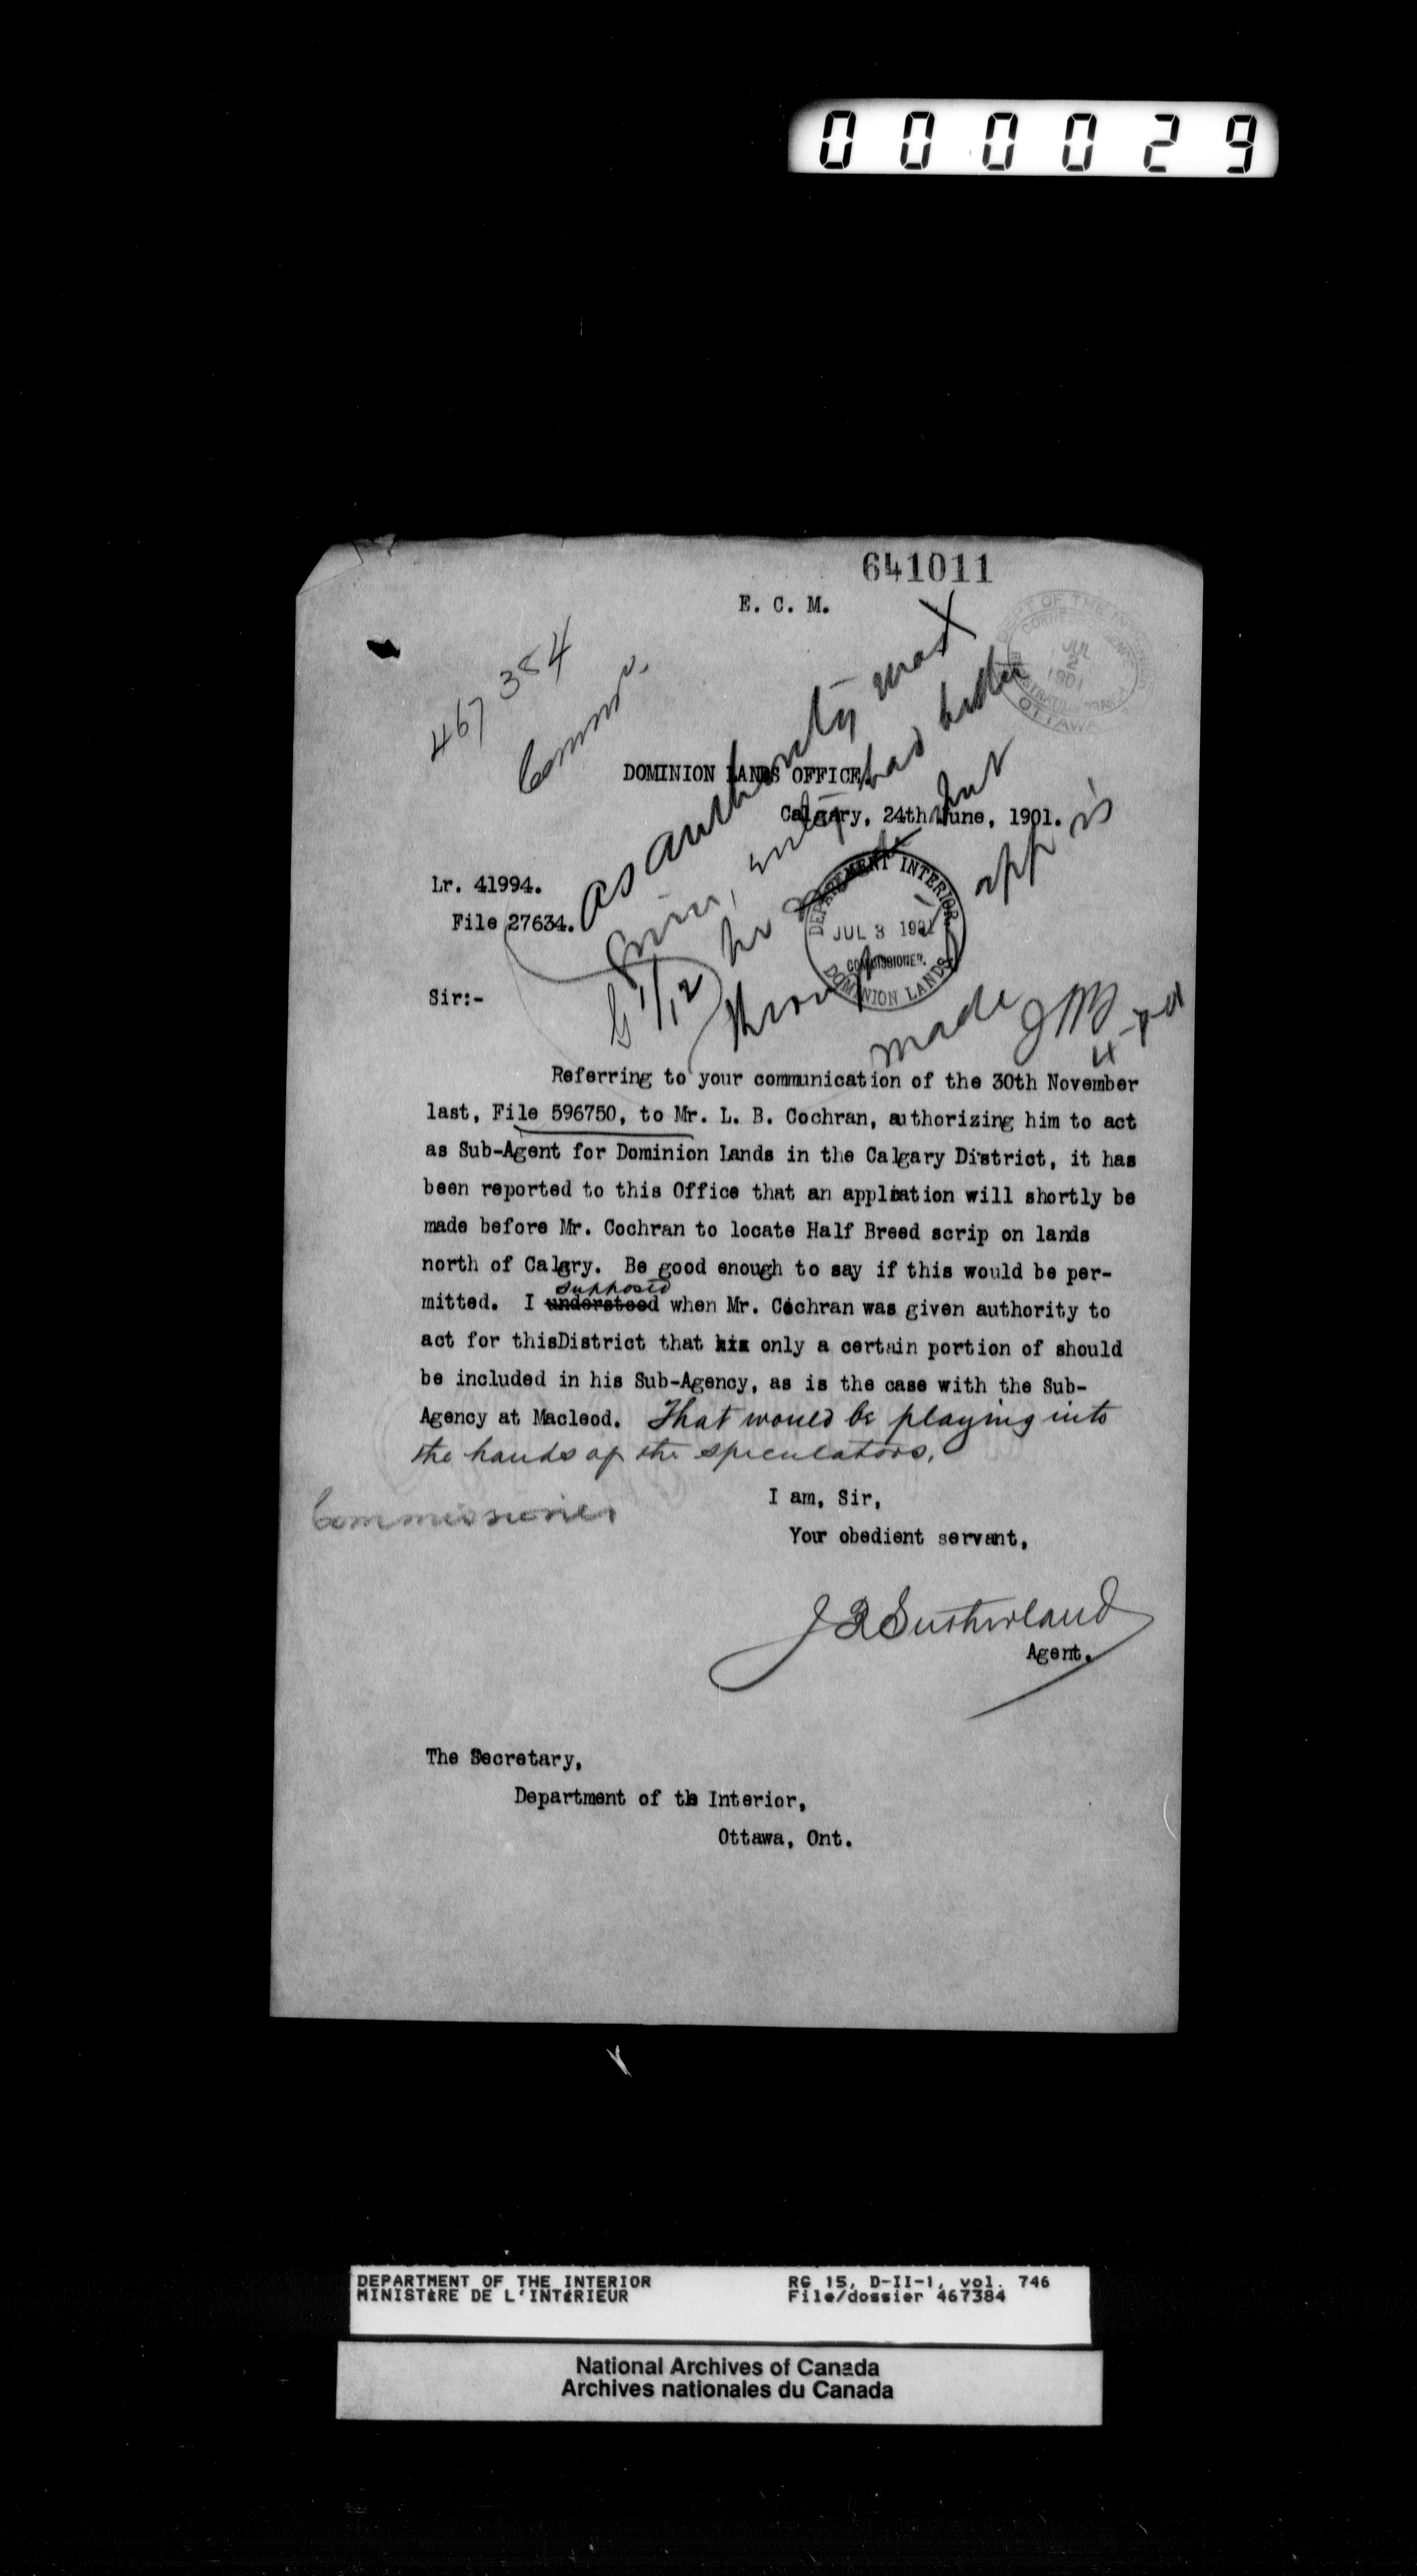 000029
641011
E. C. M.
467384
Commr.
DOMINION LANDS OFFICE,
Calgary, 24th June, 1901.
DEPT OF THE INTERIOR
JUL
2
1901
OTTAWA
as authority was
given, entry had better
be made but
through
app is
made
4-7-01
DEPARTEMENT INTERIOR
JUL 3 1901
COMMISSIONER.
DOMINION LANDS
Lr. 41994.
File 27634.
Sir:-
Referring to your communication of the 30th November
last, File 596750, to Mr. L. B. Cochran, authorizing him to act
as Sub-Agent for Dominion Lands in the Calgary District, it has
been reported to this Office that an appliation will shortly be
made before Mr. Cochran to locate Half Breed scrip on lands
north of Calgry. Be good enough to say if this would be per-
supposed
mitted. I understood when Mr. Cochran was given authority to
act for thisDistrict that his only a certain portion of should
be included in his Sub-Agency, as is the case with the Sub-
Agency at Macleod. That would be playing into
the hands of the speculators.
I am, Sir,
Commissioner
Your obedient servant,
J R Sutherland
Agent.
The Secretary,
Department of the Interior,
Ottawa, Ont.
DEPARTMENT OF THE INTERIOR RG 15, D-II-1, vol. 746
MINISTÈRE DE L'INTÉRIEUR File/dossier 467384
National Archives of Canada
Archives nationales du Canada